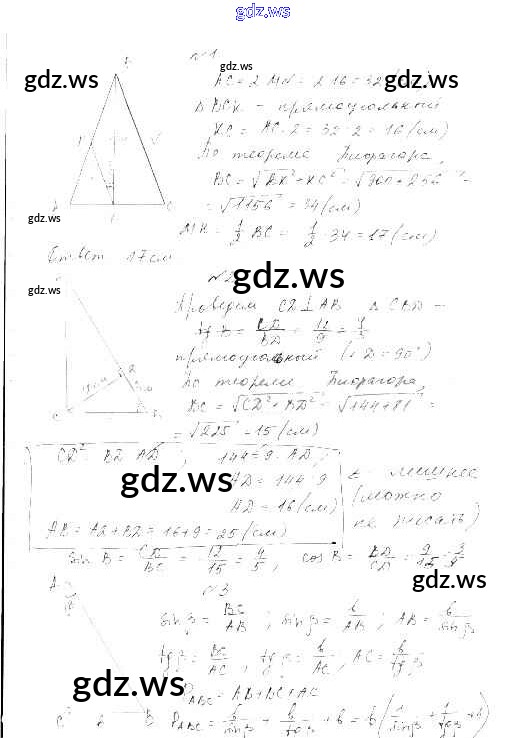 gdz.ws
№1
gdz.ws
gdz.ws
gdz.ws
AC = 2 MN = 2·16 = 32
Δ BCK – прямоугольный
KC = AC : 2 = 32 : 2 = 16 (см)
По теореме Пифагора,
BC = √BK² + KC² = √900 + 256 =
= √1156 = 34 (см)
MK = 1/2 BC = 1/2 · 34 = 17 (см)
gdz.ws
Ответ 17 см
№2
gdz.ws
gdz.ws
Проверем CD ⊥ AB Δ CBD –
tg B = CD/BD = 12/9 = 4/3
прямоугольный (∠D = 90°)
По теореми Пифагора,
BC = √CD² + BD² = √144 + 81 =
= √225 = 15 (см)
CD² = BD · AD ; 144 = 9 · AD ;
AD = 144 : 9
AD = 16 (см)
AB = AD + BD = 16 + 9 = 25 (см)
← лишнее
(можно
не писать)
gdz.ws
gdz.ws
sin B = CD/BC = 12/15 = 4/5 ; cos B = BD/CD = 9/15 =
gdz.ws
№3
sin β = BC/AB ; sin β = b/AB ; AB = b/sin β
tg β = BC/AC ; tg β = b/AC ; AC = b/tg β
gdz.ws
P ABC = AB + BC + AC
P ABC = b/sin β + b/tg β + b = b (1/sin β + 1/tg β + 1)